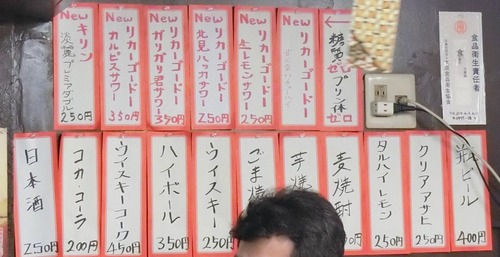 糖質ゼロ プリン体ゼロ
New リカーゴードー
New リカーゴードー 生レモンサワー 250円
New リカーゴードー 北見ハッカサワー 250円
New リカーゴードー ガリガリ君サワー 350円
New リカーゴードー カルピスサワー 350円
New キリン 淡麗プレミアダブル 250円
食品衛生責任者
瓶ビール 400円
クリアアサヒ 250円
タルハイレモン 250円
麦焼酎
芋焼
ごま焼
ウィスキー 250円
ハイボール 350円
ウィスキーコーク 450円
コカ・コーラ 200円
日本酒 250円